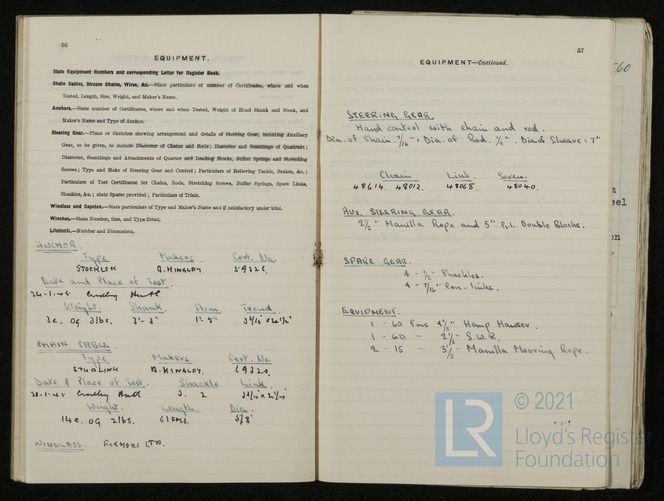 56
EQUIPMENT.
State Equipment Numbers and corresponding Letter for Register Book.
Chain Cables, Stream Chains, Wires, &c.—State particulars of number of Certificates, where and when
Tested, Length, Size, Weight, and Maker's Name.
Anchors.—State number of Certificates, where and when Tested, Weight of Head Shank and Stock, and
Maker's Name and Type of Anchor.
Steering Gear.—Plans or Sketches showing arrangement and details of Steering Gear, including Auxiliary
Gear, to be given, to include Diameter of Chains and Rods; Diameter and Scantlings of Quadrant;
Diameter, Scantlings and Attachments of Quarter and Leading Blocks, Buffer Springs and Stretching
Screws; Type and Make of Steering Gear and Control; Particulars of Relieving Tackle, Brakes, &c.;
Particulars of Test Certificates for Chains, Rods, Stretching Screws, Buffer Springs, Spare Links,
Shackles, &c.; state Spares provided; Particulars of Trials.
Windlass and Capstan.—State particulars of Type and Maker's Name and if satisfactory under trial.
Winches.—State Number, Size, and Type fitted.
Lifeboats.—Number and Dimensions.
ANCHOR.
Type Makers. Cert. No
STOCKLESS
Date and Place of Test.
Weight. Shank. Arm. Trend.
CHAIN CABLE.
Type Makers Cert. No
STUDLINK
Date & Place of Test. Shackle Link.
Weight. Length. Dia.
WINDLASS.
57
EQUIPMENT—Continued.
STEERING GEAR.
Hand control with chain and rod.
Dia. of Chain. 7/16", Dia. of Rod. 1/2". Dia of Sheave: 7"
Chain Link. Screws.
48614. 48012. 48065. 48040.
AUX. STEERING GEAR.
2 1/2" Manilla Rope and 5" Double Blocks.
SPARE GEAR.
4 - 1/2" Shackles.
4 - 7/16" links.
EQUIPMENT.
1 - 60 4 1/2" Hemp Hawser.
1 - 60 " 2 1/2" S.W.R.
2 - 15 " 3 1/2" Manilla Mooring Rope.
LR
© 2021
Lloyd's Register
Foundation